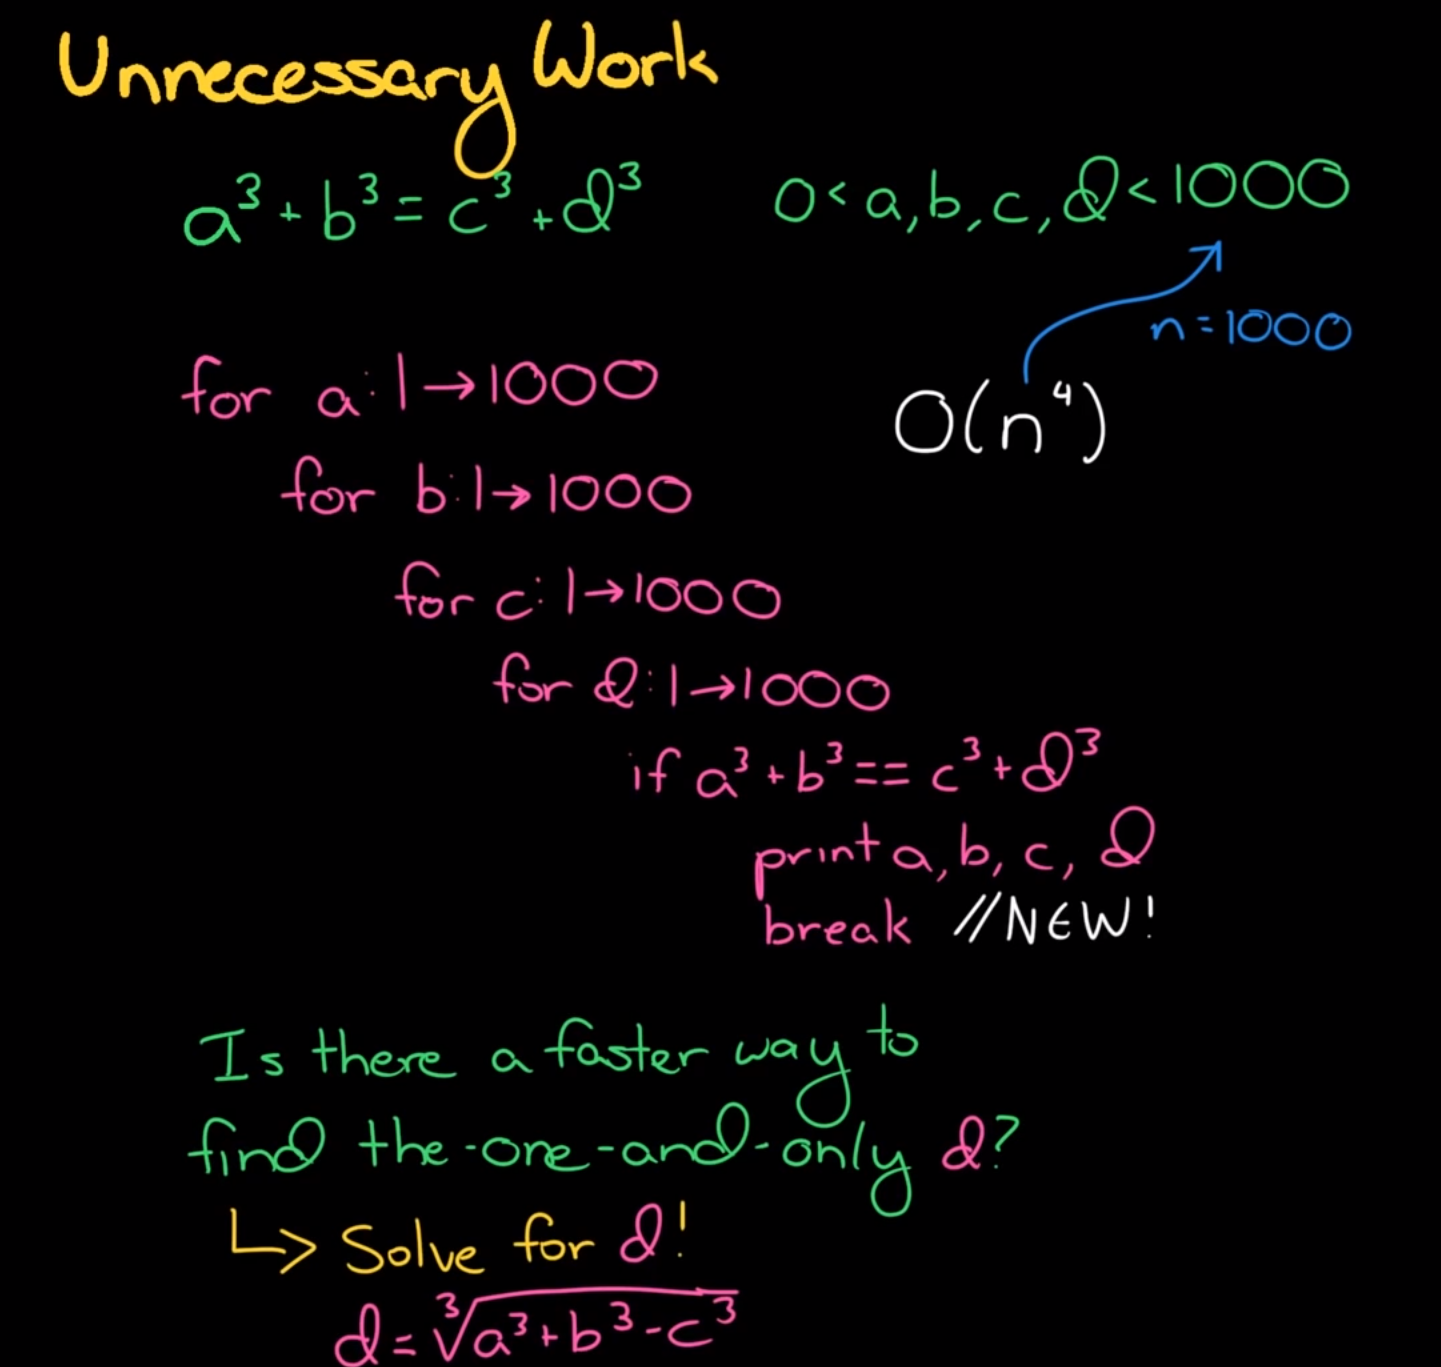 Unnecessary Work
a³ + b³ = c³ + d³    0 < a, b, c, d < 1000
n = 1000
for a: 1→1000
O(n⁴)
for b: 1→1000
for c: 1→1000
for d: 1→1000
if a³ + b³ == c³ + d³
print a, b, c, d
break //NEW!
Is there a faster way to
find the-one-and-only d?
↳ Solve for d!
d = ∛(a³ + b³ - c³)